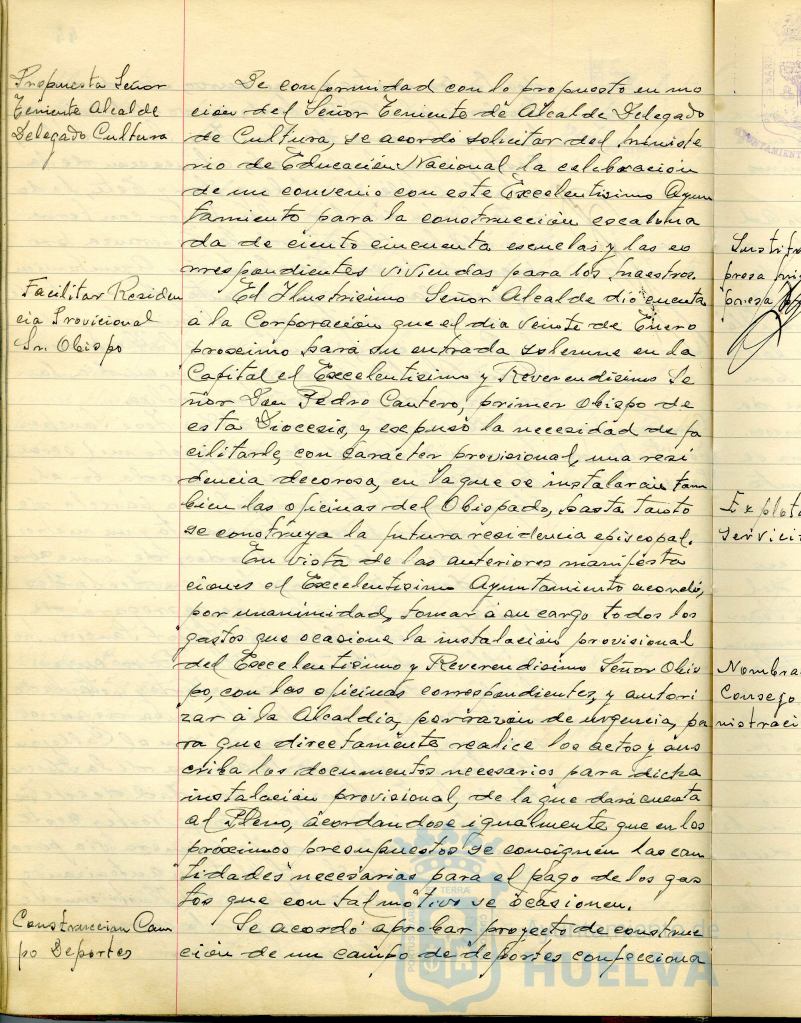 Propuesta Señor
Teniente Alcalde
Delegado Cultura
De conformidad con lo propuesto en mo
ción del Señor Teniente de Alcalde Delegado
de Cultura, se acordó solicitar del Ministe
rio de Educación Nacional la celebración
de un convenio con este Excelentisimo Ayun
tamiento para la construcción escalona
da de ciento cincuenta escuelas y las co
rrespondientes viviendas para los maestros.
Facilitar Residen
cia Provicional
Sr. Obispo
El Ilustrisimo Señor Alcalde dió cuenta
á la Corporación que el dia veinte de Enero
proximo hará su entrada solemne en la
Capital el Excelentisimo y Reverendisimo Se
ñor Don Pedro Cantero, primer Obispo de
esta Diocesis, y expusó la necesidad de fa
cilitarle, con caracter provisional, una resi
dencia decorosa, en la que se instalarán tam
bien las oficinas del Obispado, hasta tanto
se construya la futura residencia episcopal.
En vista de las anteriores manifesta
ciones el Excelentisimo Ayuntamiento acordó,
por unanimidad, tomar á su cargo todos los
gastos que ocasione la instalación provisional
del Excelentisimo y Reverendisimo Señor Obis
po, con las oficinas correspondientes, y autori
zar á la Alcaldia, por razón de urgencia, pa
ra que directamente realice los actos y sus
criba los documentos necesarios para dicha
instalación provisional, de la que dará cuenta
al Pleno, acordandose igualmente que en los
próximos presupuestos se consignen las can
tidades necesarias para el pago de los gas
tos que con tal motivo se ocasionen.
Construccion Cam
po Deportes
Se acordó aprobar proyecto de construc
ción de un campo de deportes confecciona
Ayuntamiento de
HUELVA
Explota
servici
Nombra
Consejo
nistraci